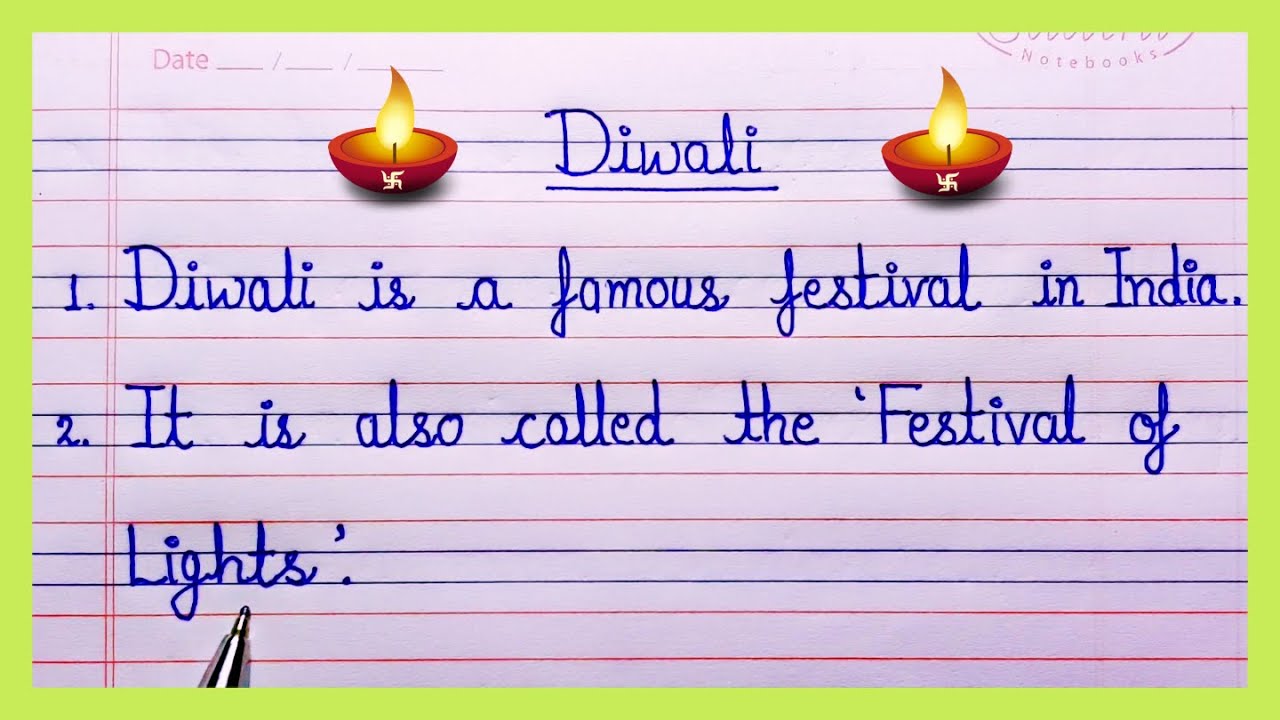 Notebooks
Date ___ / ___ / ______
Diwali
1. Diwali is a famous festival in India.
2. It is also called the 'Festival of
Lights'.